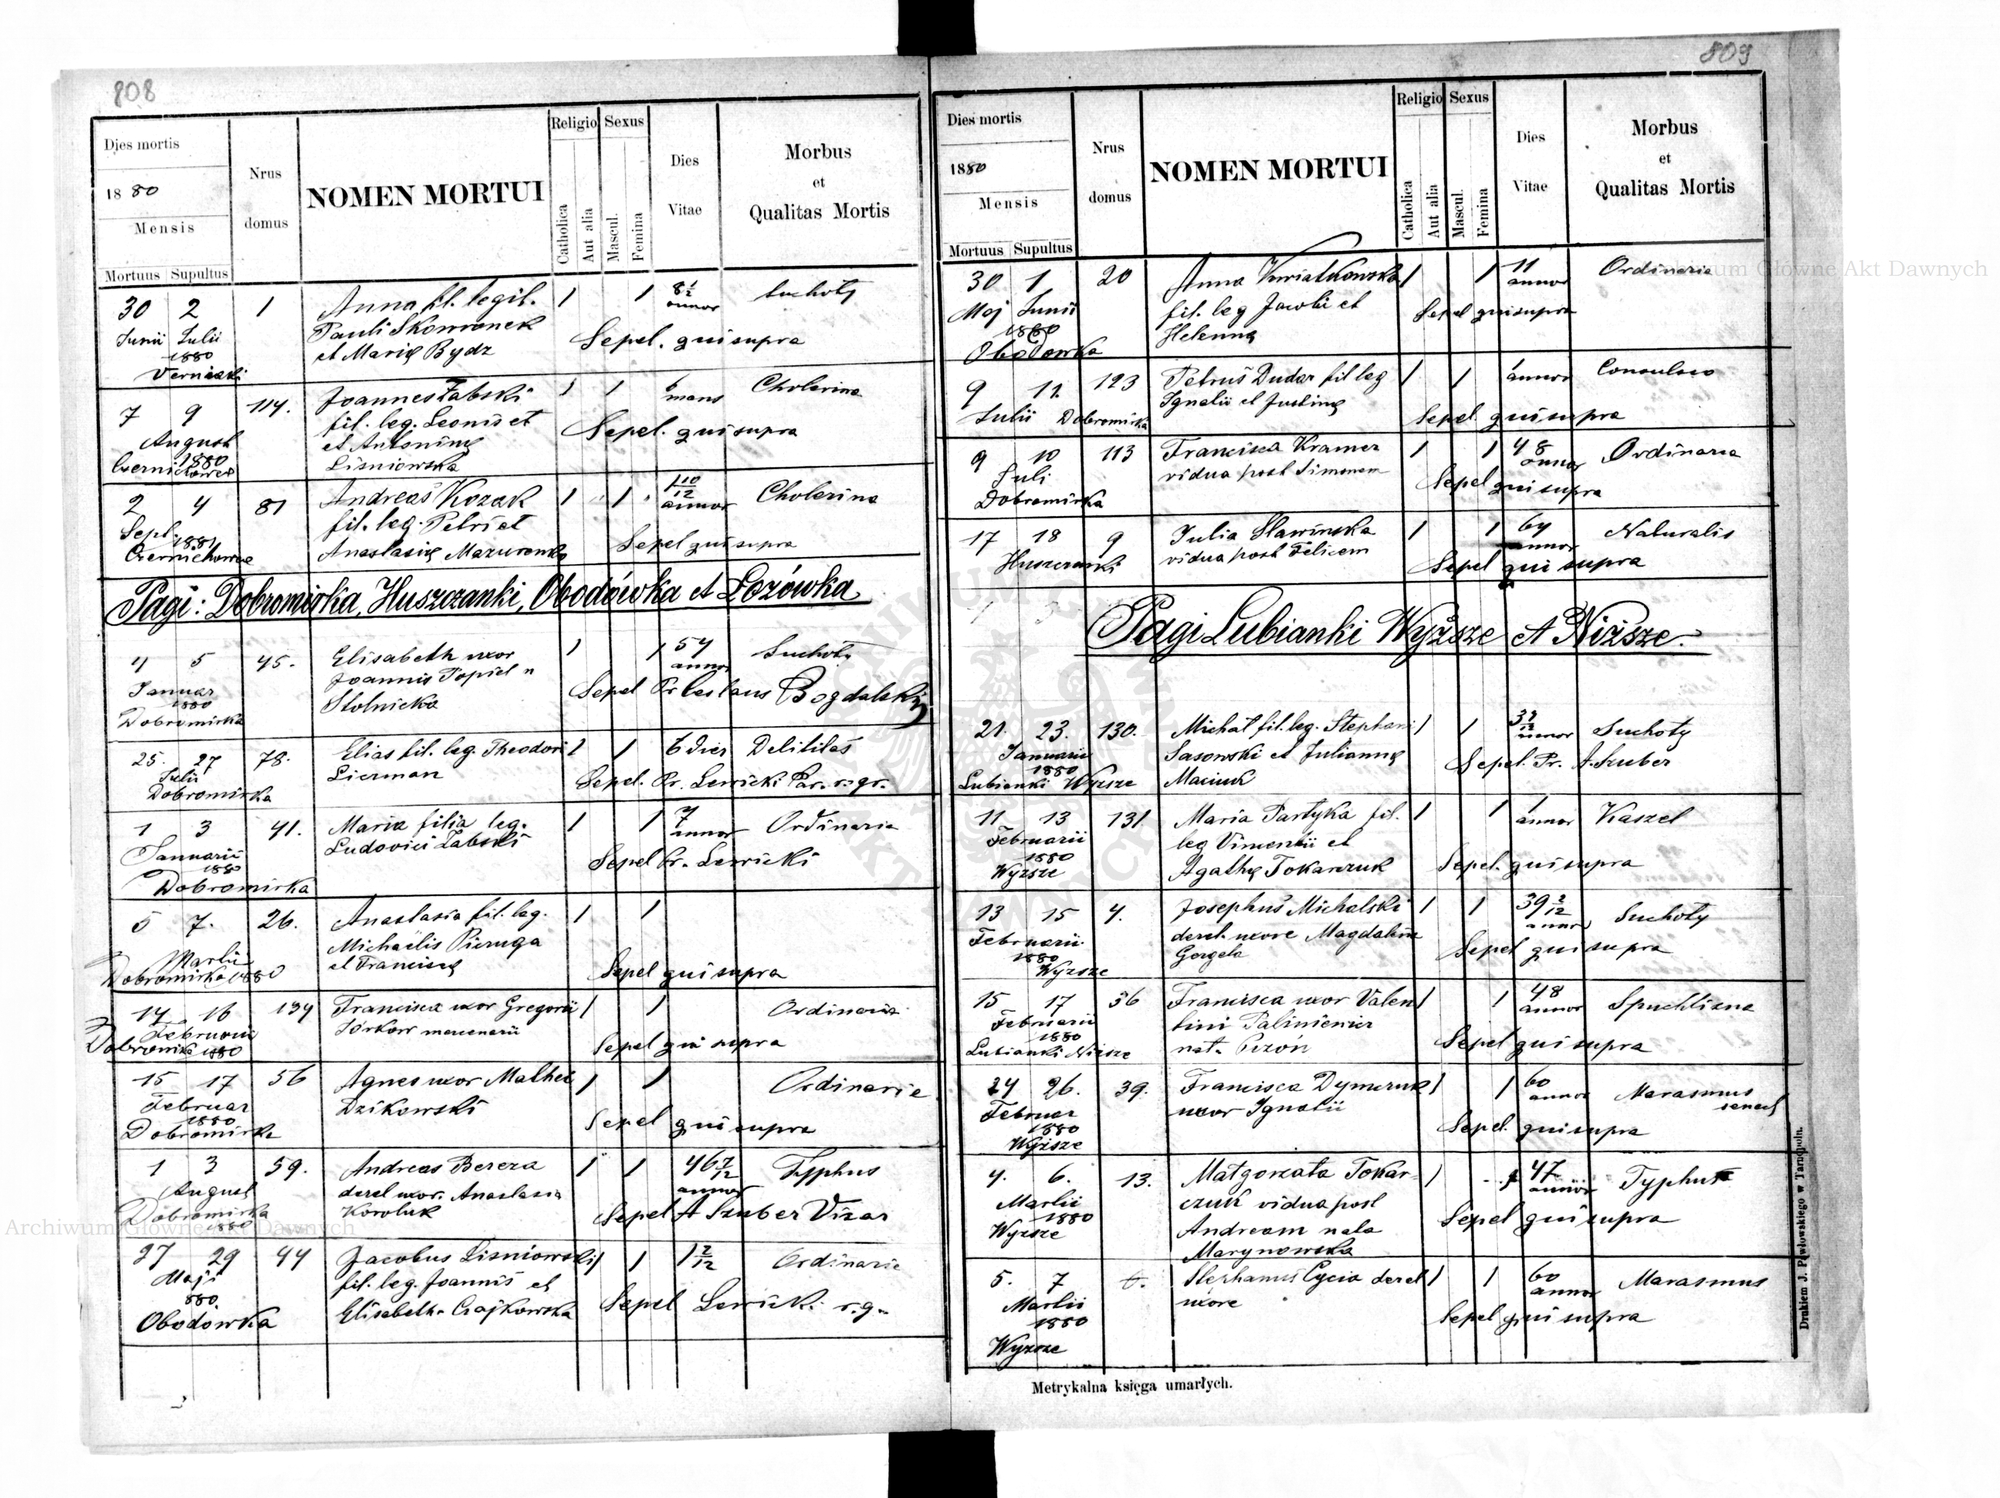 808
Dies mortis
1880
Mensis
Mortuus Supultus
Nrus domus
NOMEN MORTUI
Religio
Catholica
Aut alia
Sexus
Mascul.
Femina
Dies Vitae
Morbus
et
Qualitas Mortis
30 2 1 Anna fil. legit. 1 1 8½ annor Suchoty
Junii Julii Pauli Skowronek Sepel. qui supra
1880 et Marię Bydz
7 9 114. Joannes Żabski 1 1 6 Cholerina
August fil. leg. Leonis et Sepel. qui supra
1880 et Antoninę
Lisniowska
2 4 81 Andreas Kozak 1 1 1 10/12 annor Cholerina
Sept. 1881 fil. leg. Petri et Sepel qui supra
Czernichowce Anastasię
Pagi: Dobromirka, Huszczanki, Obodówka et Łozówka
4 5 45. Elisabeth uxor 1 1 54 annor Suchoty
Januar Joannis Topiel Sepel Pr Ceslaus Bogdalski
1880 Stolnicka
Dobromirka
25. 27 78. Elias fil. leg. Theodori 1 1 6 dies Debilitas
Julii Lierman Sepel. Pr. Lewicki Par. r. gr.
Dobromirka
1 3 41. Maria filia leg. 1 1 7 annor Ordinaria
Januarii Ludovici Żabski Sepel Pr. Lewicki
1880
Dobromirka
5 7. 26. Anastasia fil. leg. 1 1
Martii Michaëlis Pieruga Sepel qui supra
Dobromirka 1880 et Franciscę
14 16 134 Francisca uxor Gregorii 1 1 Ordinaria
Februarii mercenarii
Dobromirka 1880 Sepel qui supra
15 17 56 Agnes uxor Mathei 1 1 Ordinarie
Februar Dzikowski
1880 Sepel qui supra
Dobromirka
1 3 59. Andreas Bereza 1 1 46 7/12 annor Typhus
August derel. uxor. Anastasia Sepel A Szuber Vicar
Dobromirka Koroluk
1880
27 29 44 Jacobus Lisniowski 1 1 1 2/12 Ordinaria
Maji fil. leg. Joannis et
880 Elisabeth Czajkowska Sepel Lewicki r. g.
Obodówka
809
Dies mortis
1880
Mensis
Mortuus Supultus
Nrus domus
NOMEN MORTUI
Religio
Catholica
Aut alia
Sexus
Mascul.
Femina
Dies Vitae
Morbus
et
Qualitas Mortis
30 1 20 Anna Kwiatkowska 1 1 11 annor Ordinaria
Maj Junii fil. leg Jacobi et Sepel qui supra
1880 Helenę
Obodowka
9 11 123 Petrus Dudar fil leg 1 1 1 annor
Julii Dobromirka Ignatii et Justinę Sepel. qui supra
9 10 113 Francisca Kramer 1 1 48 annor Ordinaria
Juli vidua post Simonem Sepel qui supra
Dobromirka
17 18 9 Julia Sławinska 1 1 64 annor Naturalis
Huszczanki vidua post Felicem Sepel qui supra
Pagi Lubianki Wyższe et Niższe.
21. 23. 130. Michał fil. leg. Stephani 1 1 annor Suchoty
Januarii Sasowski et Juliannę Sepel. Pr. A. Szuber
1880 Maciuk
Lubianki Wyzsze
11 13 131 Maria Partyka fil. 1 1 1 annor Kaszel
Februarii leg Vincentii et Sepel. qui supra
1880 Agathę Tokarczuk
Wyzsze
13 15 4. Josephus Michalski 1 1 39 2/12 annor Suchoty
Februarii derel. uxore Magdalena Sepel qui supra
1880 Gorgela
Wyzsze
15 17 56 Francisca uxor Valen 1 1 48 annor Spuchlizna
Februarii tini Paliniewicz
1880 nat. Sepel qui supra
Lubianki Niższe
24 26. 39. Francisca Dymczuk 1 1 60 annor Marasmus
Februar uxor Ignatii senect
1880 Sepel. qui supra
Wyższe
4. 6. 13. Małgorzata Tokar- 1 1 47 annor Typhus
Martii czuk vidua post
1880 Andream nata Sepel qui supra
Wyzsze Marynowska
5. 7 6. Stephanus Cycia derel 1 1 60 annor Marasmus
Martii uxore Sepel qui supra
1880
Wyzsze
Metrykalna księga umarłych.
Drukiem J. Pawłowskiego w Tarnopolu.
Archiwum Główne Akt Dawnych
Archiwum Główne Akt Dawnych